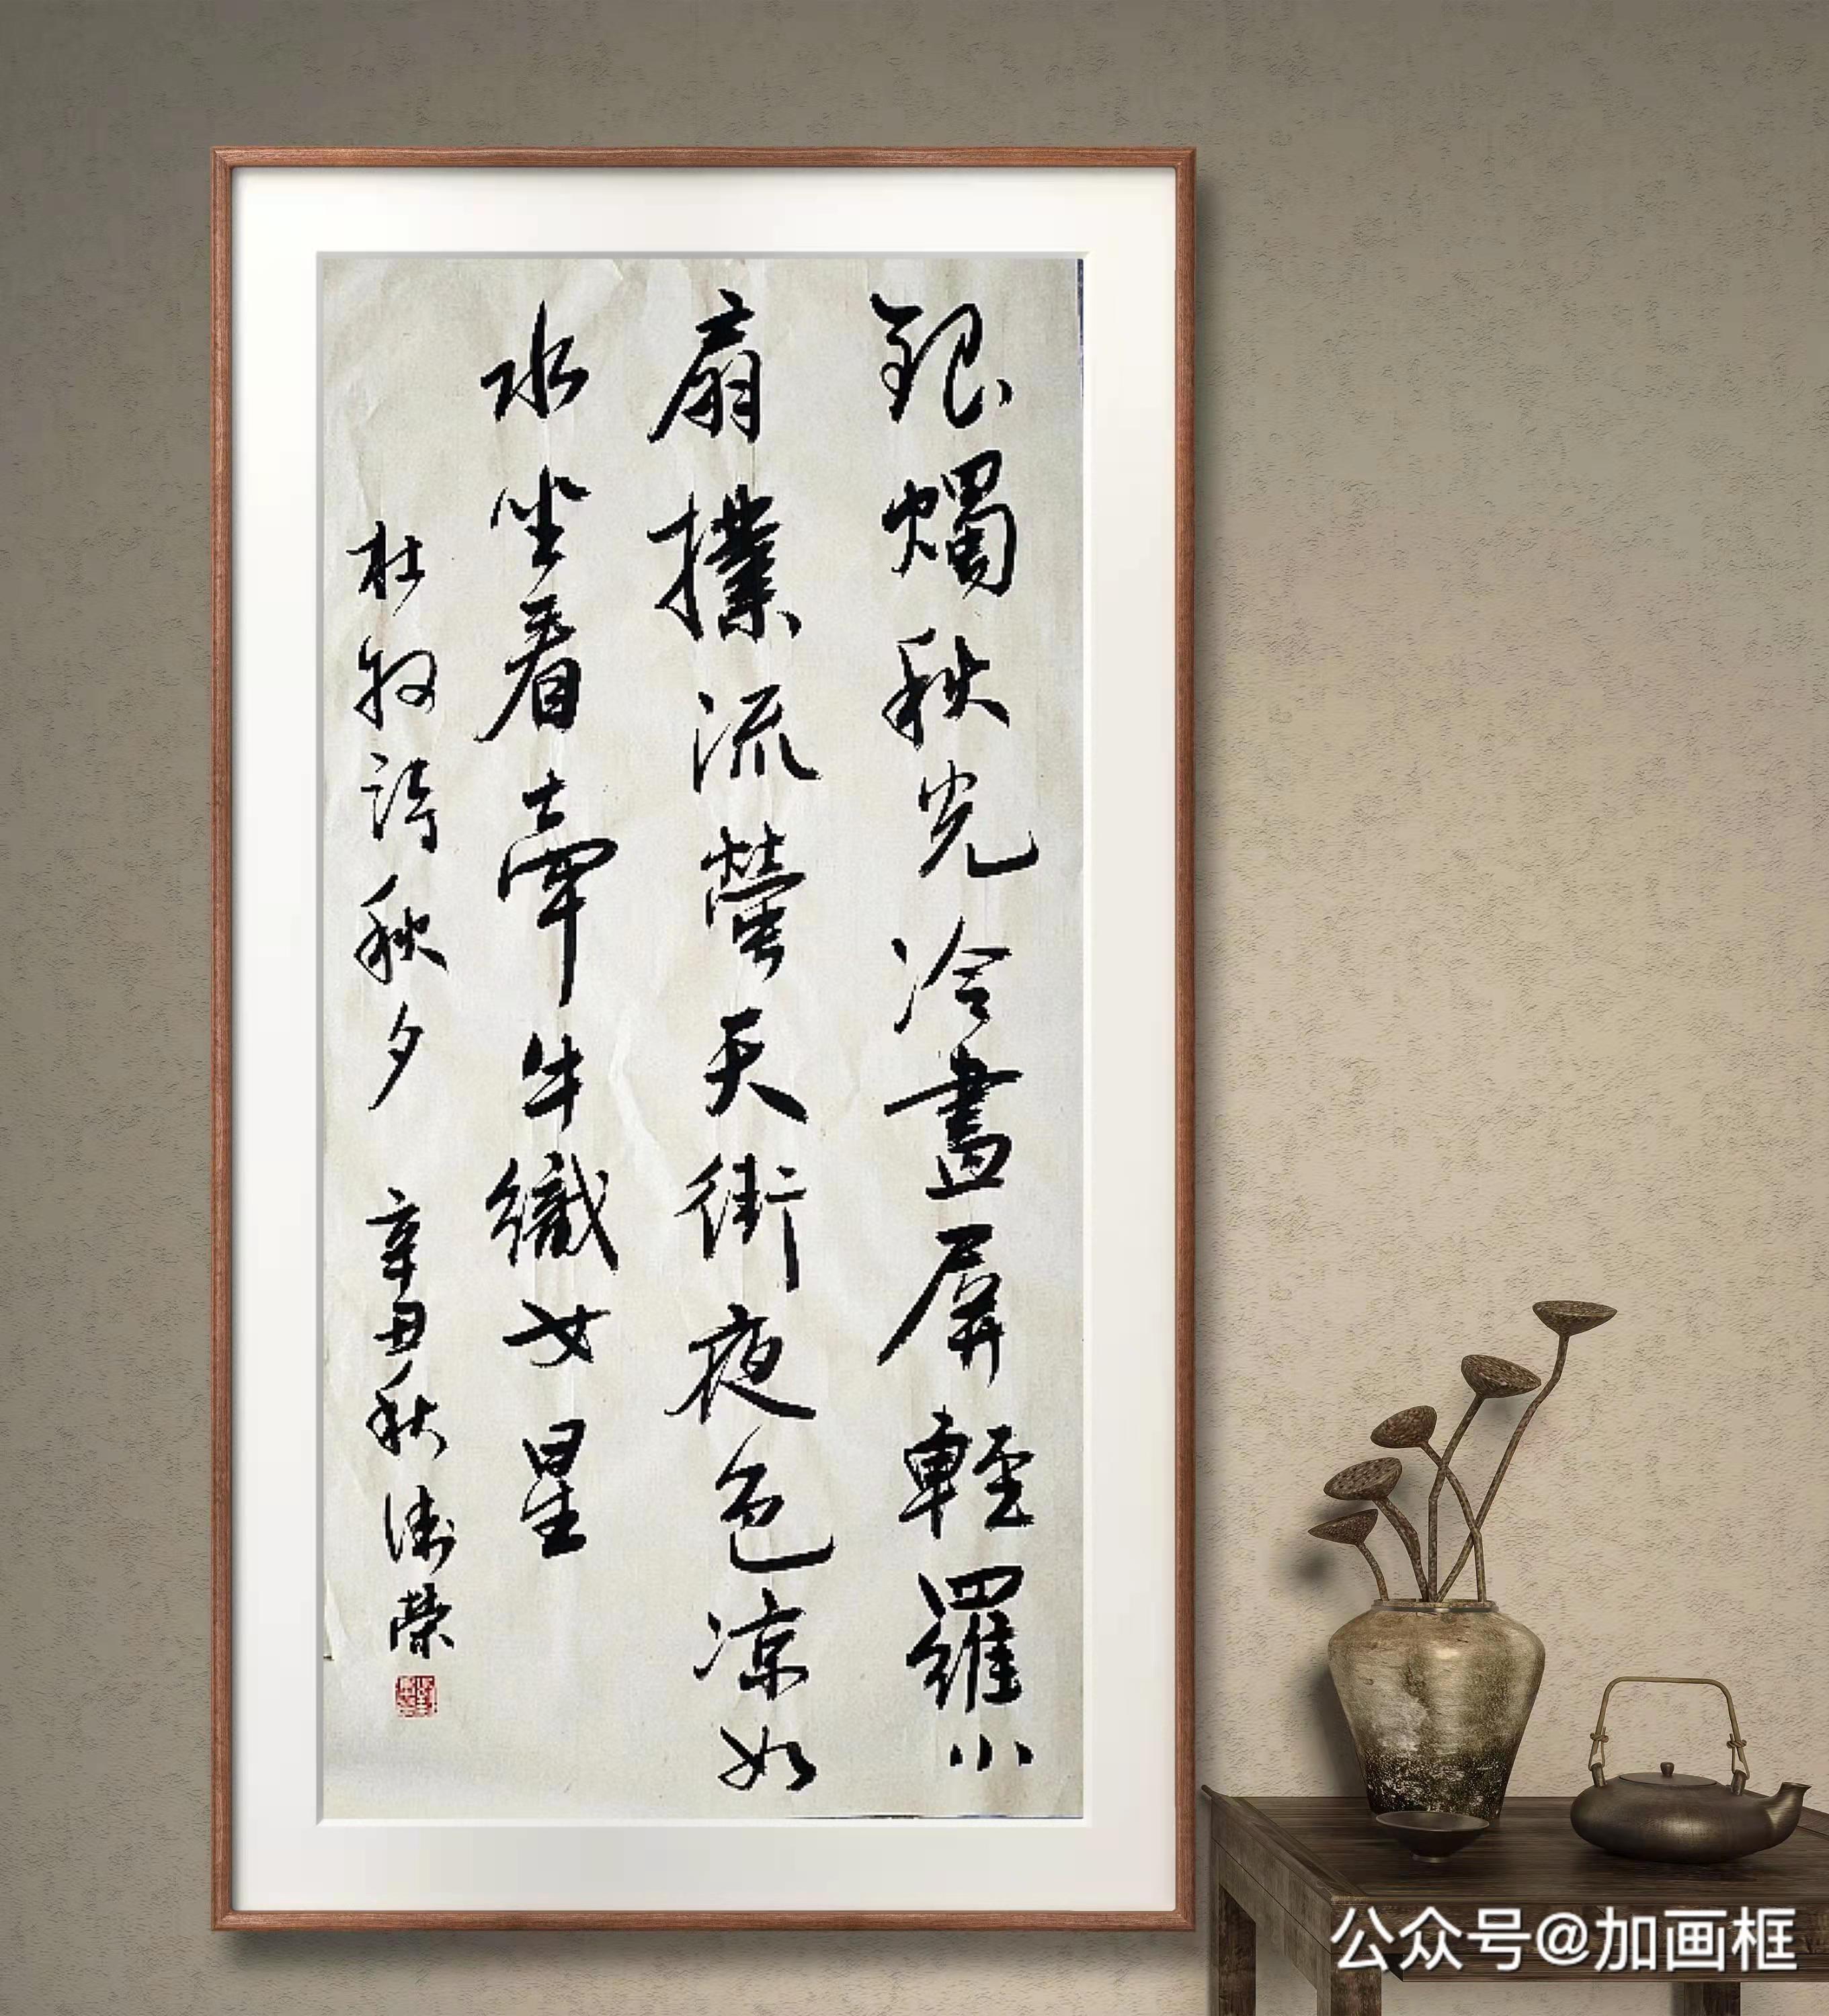 銀燭秋光冷畫屏輕羅小
扇撲流螢天街夜色涼如
水坐看牽牛織女星
杜牧詩秋夕 辛丑秋 榮
公众号@加画框